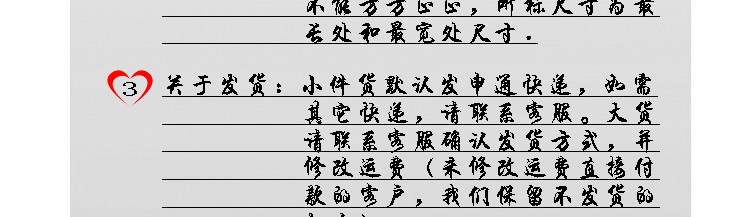 不能方方正正，所标尺寸为最
长处和最宽处尺寸.
3 关于发货：小件货默认发申通快递，如需
其它快递，请联系客服。大货
请联系客服确认发货方式，并
修改运费（未修改运费直接付
款的客户，我们保留不发货的